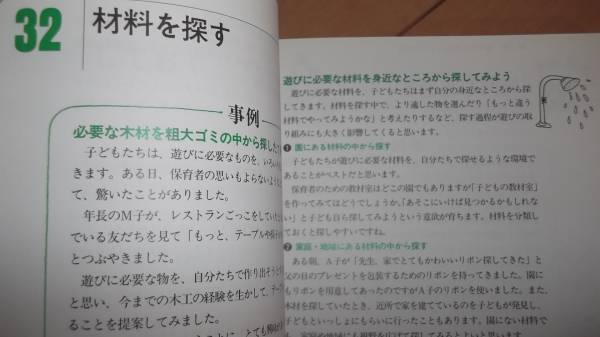 32
材料を探す
事例
必要な木材を粗大ゴミの中から探した
子どもたちは、遊びに必要なものを、いろい
きます。ある日、保育者の思いもよらない
て、驚いたことがありました。
年長のM子が、レストランごっこをしてい
でいる友だちを見て「もっと、テーブルや
とつぶやきました。
遊びに必要な物を、自分たちで作り出そう
と思い、今までの木工の経験を生かして、テー
ることを提案してみました。
遊びに必要な材料を身近なところから探してみよう
遊びに必要な材料を、子どもたちはまず自分の身近なところから探
してきます。材料を探す中で、より適した物を選んだり「もっと違う
材料でやってみようかな」と考えたりするなど、探す過程が遊びの取
り組みにも大きく影響してくると思います。
❶ 園にある材料の中から探す
子どもたちが遊びに必要な材料を、自分たちで探せるような環境で
あることがベストだと思います。
保育者のための教材室はどこの園でもありますが「子どもの教材室」
を作ってみてはどうでしょうか。「あそこにいけば見つかるかもしれな
い」と子ども自ら探してみようという意欲が育ちます。材料を分類し
ておくと探しやすいですね。
❷ 家庭・地域にある材料の中から探す
ある朝、A子が「先生、家でとてもかわいいリボン探してきた」と
父の日のプレゼントを包装するためのリボンを持ってきました。園に
もリボンを用意してあったのですがA子のリボンを使いました。また、
木材を探していたとき、近所で家を建てているのを子どもが発見し、
子どもといっしょにもらいに行ったこともあります。園にない材料で